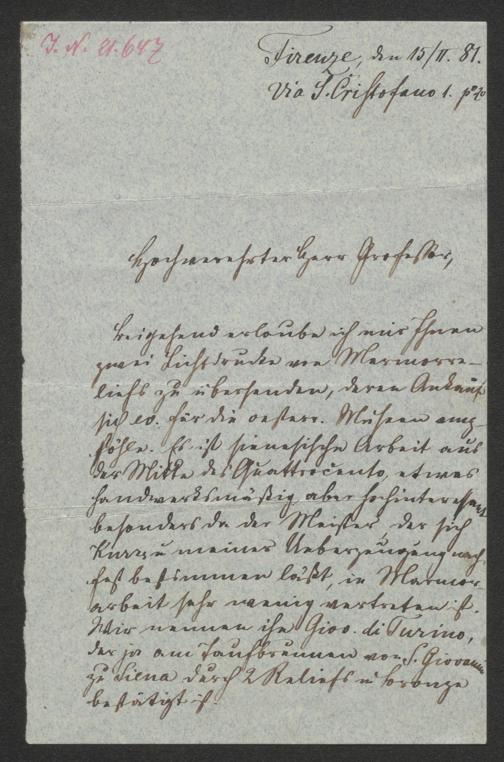 J. N. 21.647
Firenze, den 15/II. 81.
Via S. Cristofano 1. po 4o
Hochverehrter Herr Professor,
beigehend erlaube ich mir Ihnen
zwei Lichtdrucke von Marmorre-
liefs zu übersenden, deren Ankauf
sich ev. für die oesterr. Museen emp-
föhle. Es ist sienesische Arbeit aus
der Mitte des Quattrocento, etwas
handwerksmäßig aber hochinteressant
besonders da der Meister der sich
meiner Ueberzeugung nach
fest bestimmen läßt, in Marmor-
arbeit sehr wenig vertreten ist.
Wir nennen ihn Giov. di Turino,
der ja am Taufbrunnen von S. Giovanni
zu Siena durch 2 Reliefs in bronze
bestätigt ist.